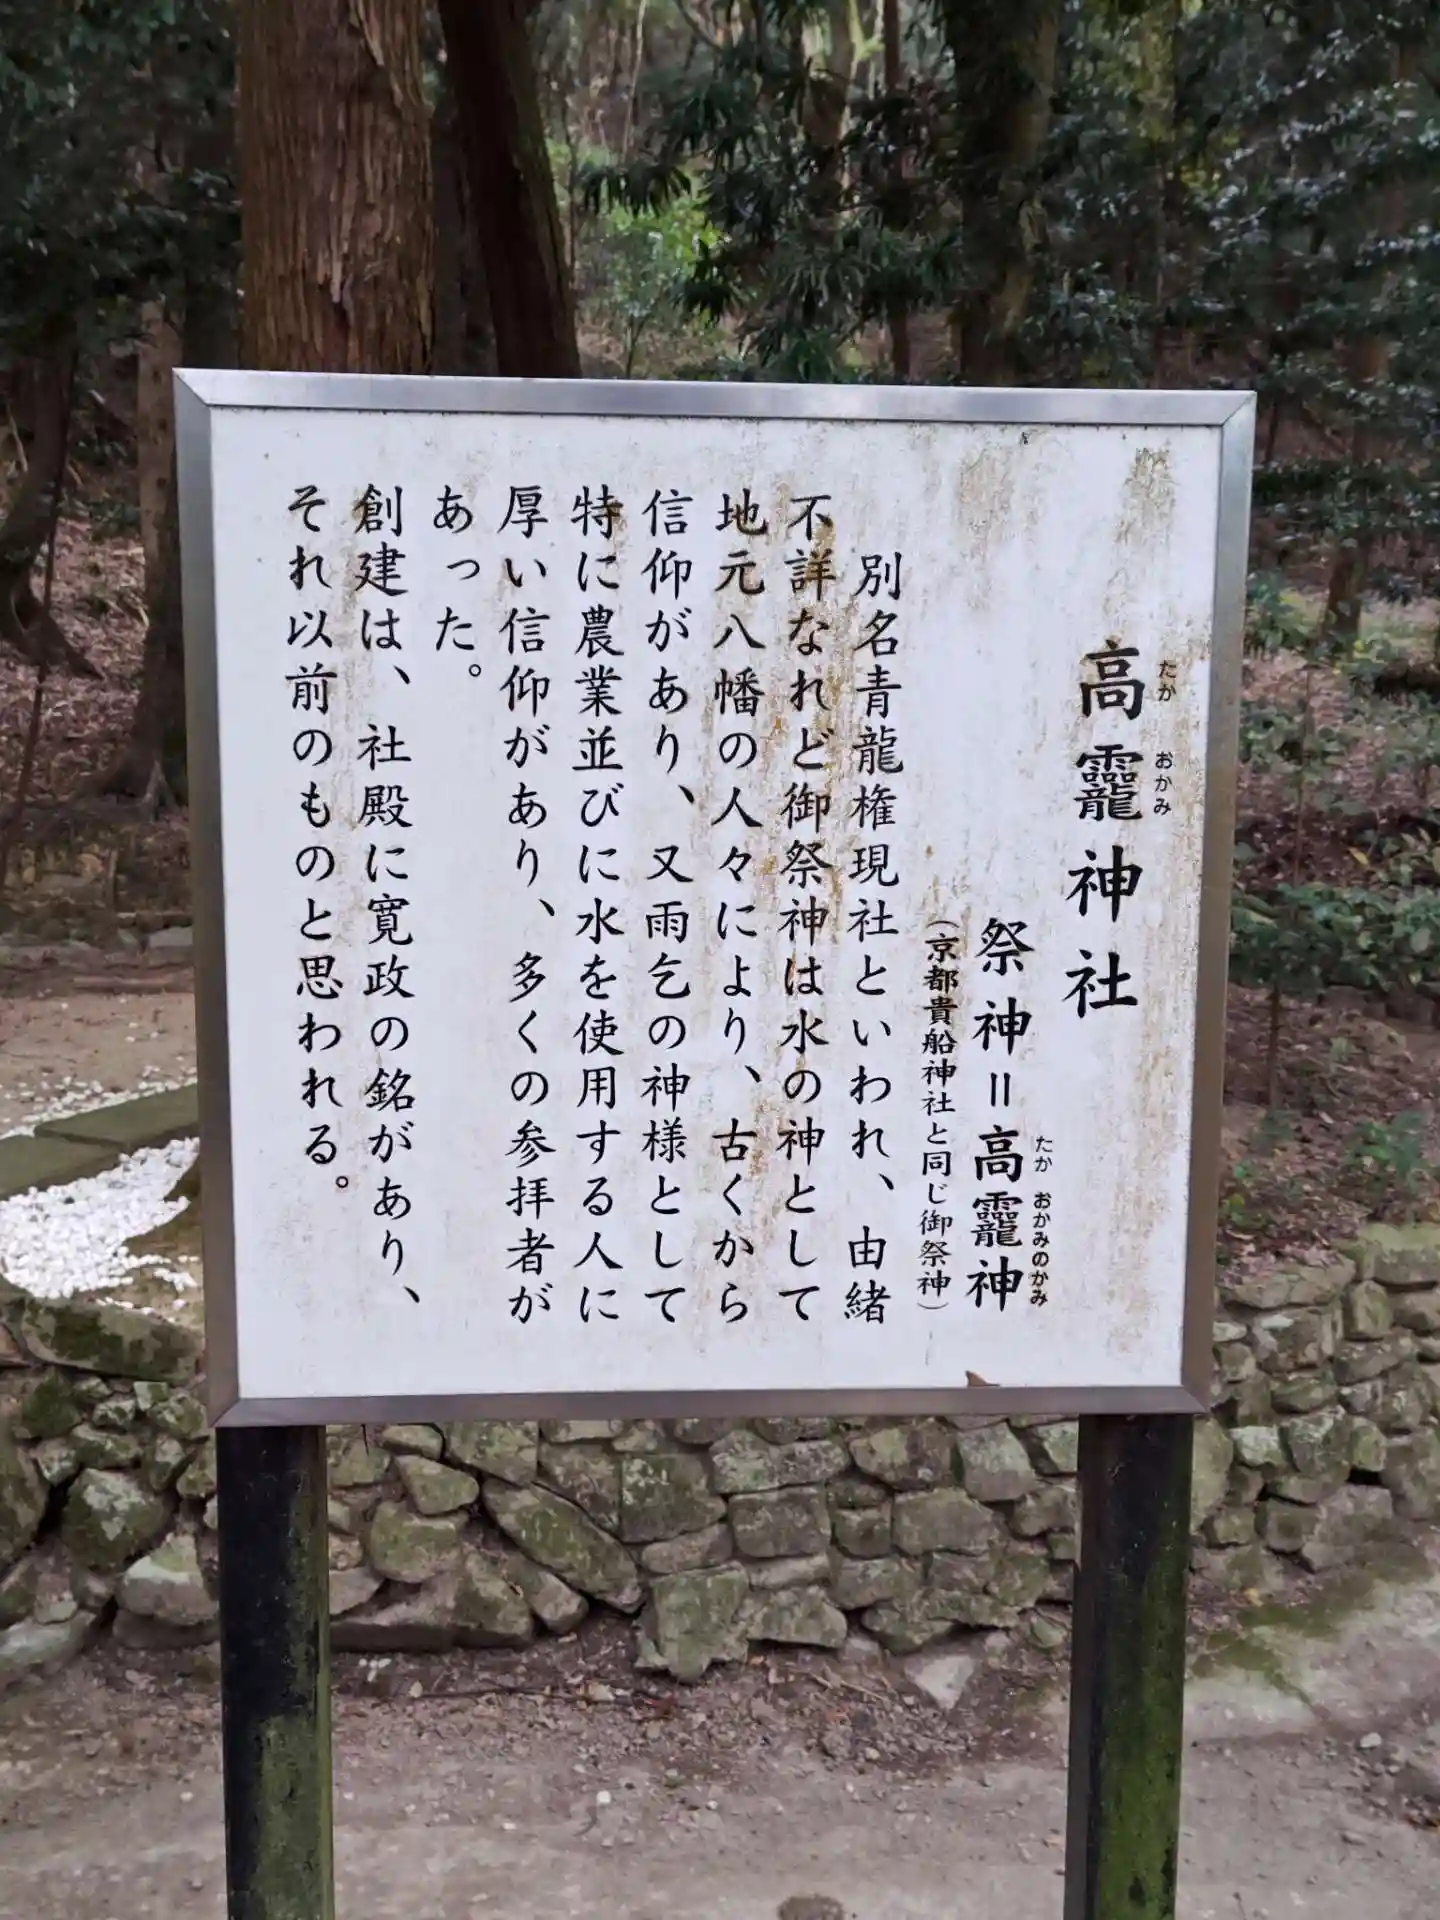 高靇神社
たか おかみ
祭神＝高靇神
たか おかみのかみ
（京都貴船神社と同じ御祭神）
別名青龍権現社といわれ、由緒
不詳なれど御祭神は水の神として
地元八幡の人々により、古くから
信仰があり、又雨乞の神様として
特に農業並びに水を使用する人に
厚い信仰があり、多くの参拝者が
あった。
創建は、社殿に寛政の銘があり、
それ以前のものと思われる。